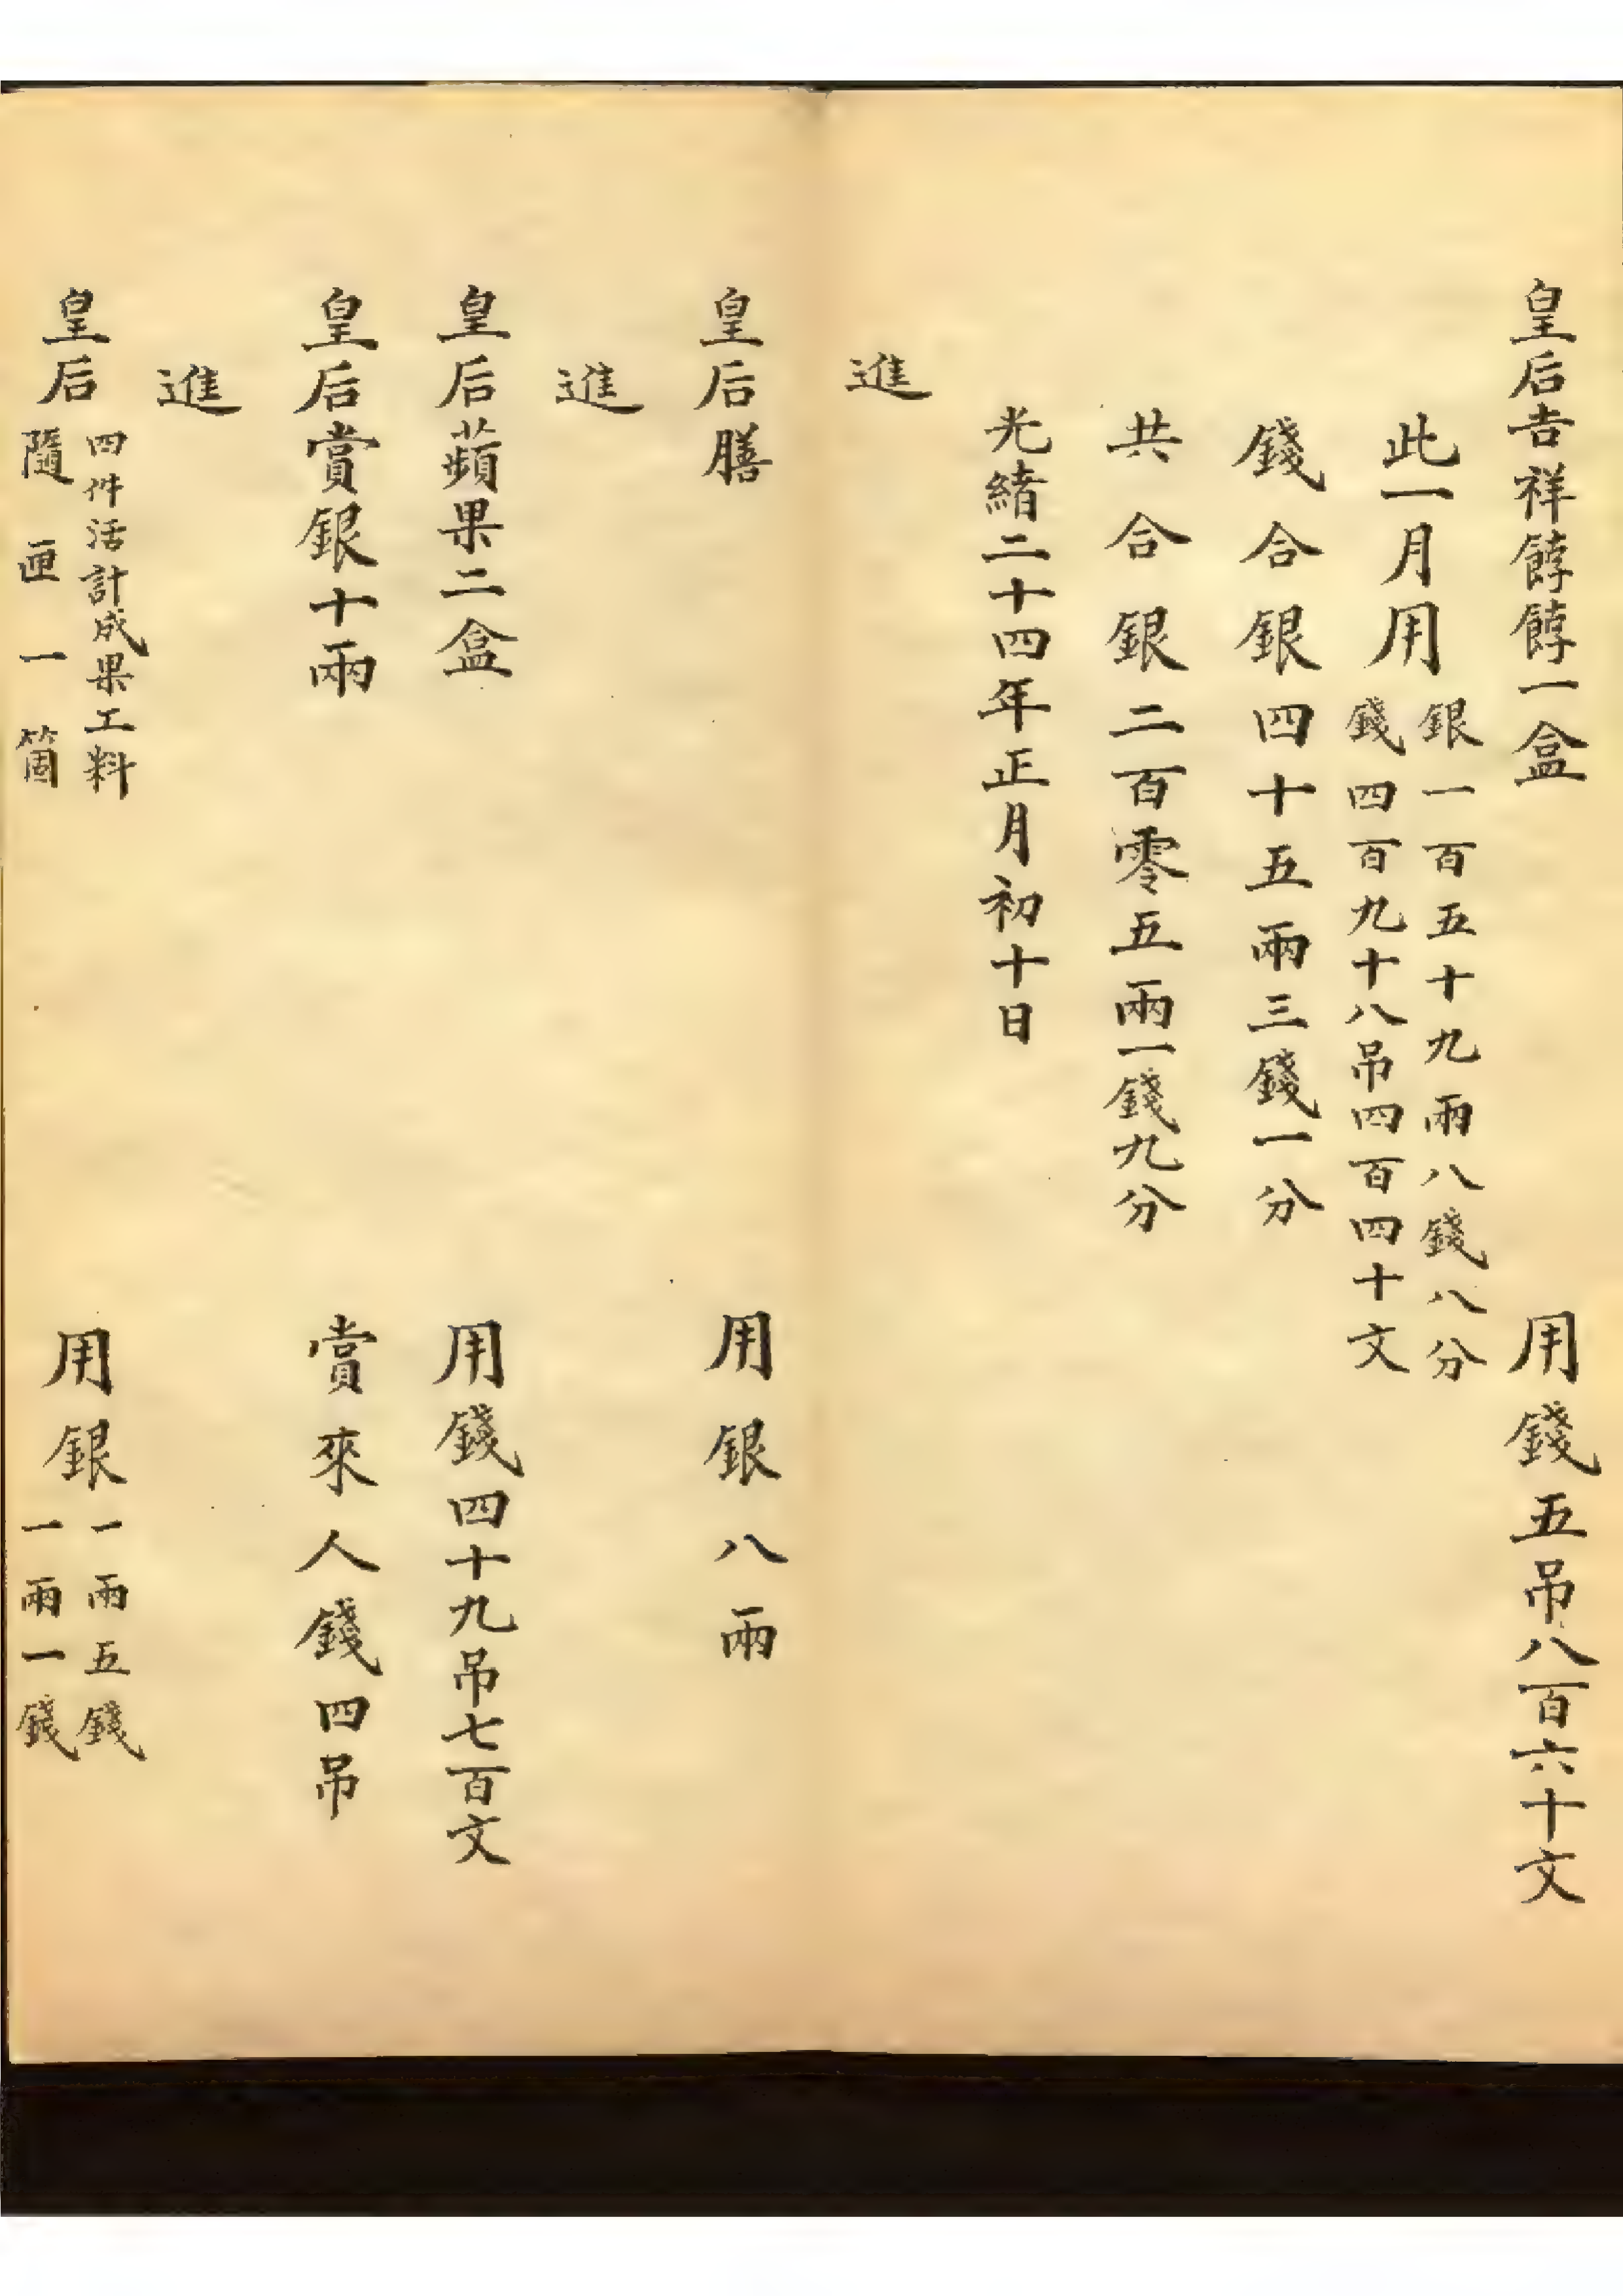 皇后吉祥餑餑一盒 用錢五吊八百六十文
此一月用
銀一百五十九兩八錢八分
錢四百九十八吊四百四十文
錢合銀四十五兩三錢一分
共合銀二百零五兩一錢九分
光緒二十四年正月初十日
進
皇后膳 用銀八兩
進
皇后蘋果二盒 用錢四十九吊七百文
皇后賞銀十兩 賞來人錢四吊
進
皇后
四件活計成果工料
隨匣一箇
用銀
一兩五錢
一兩一錢